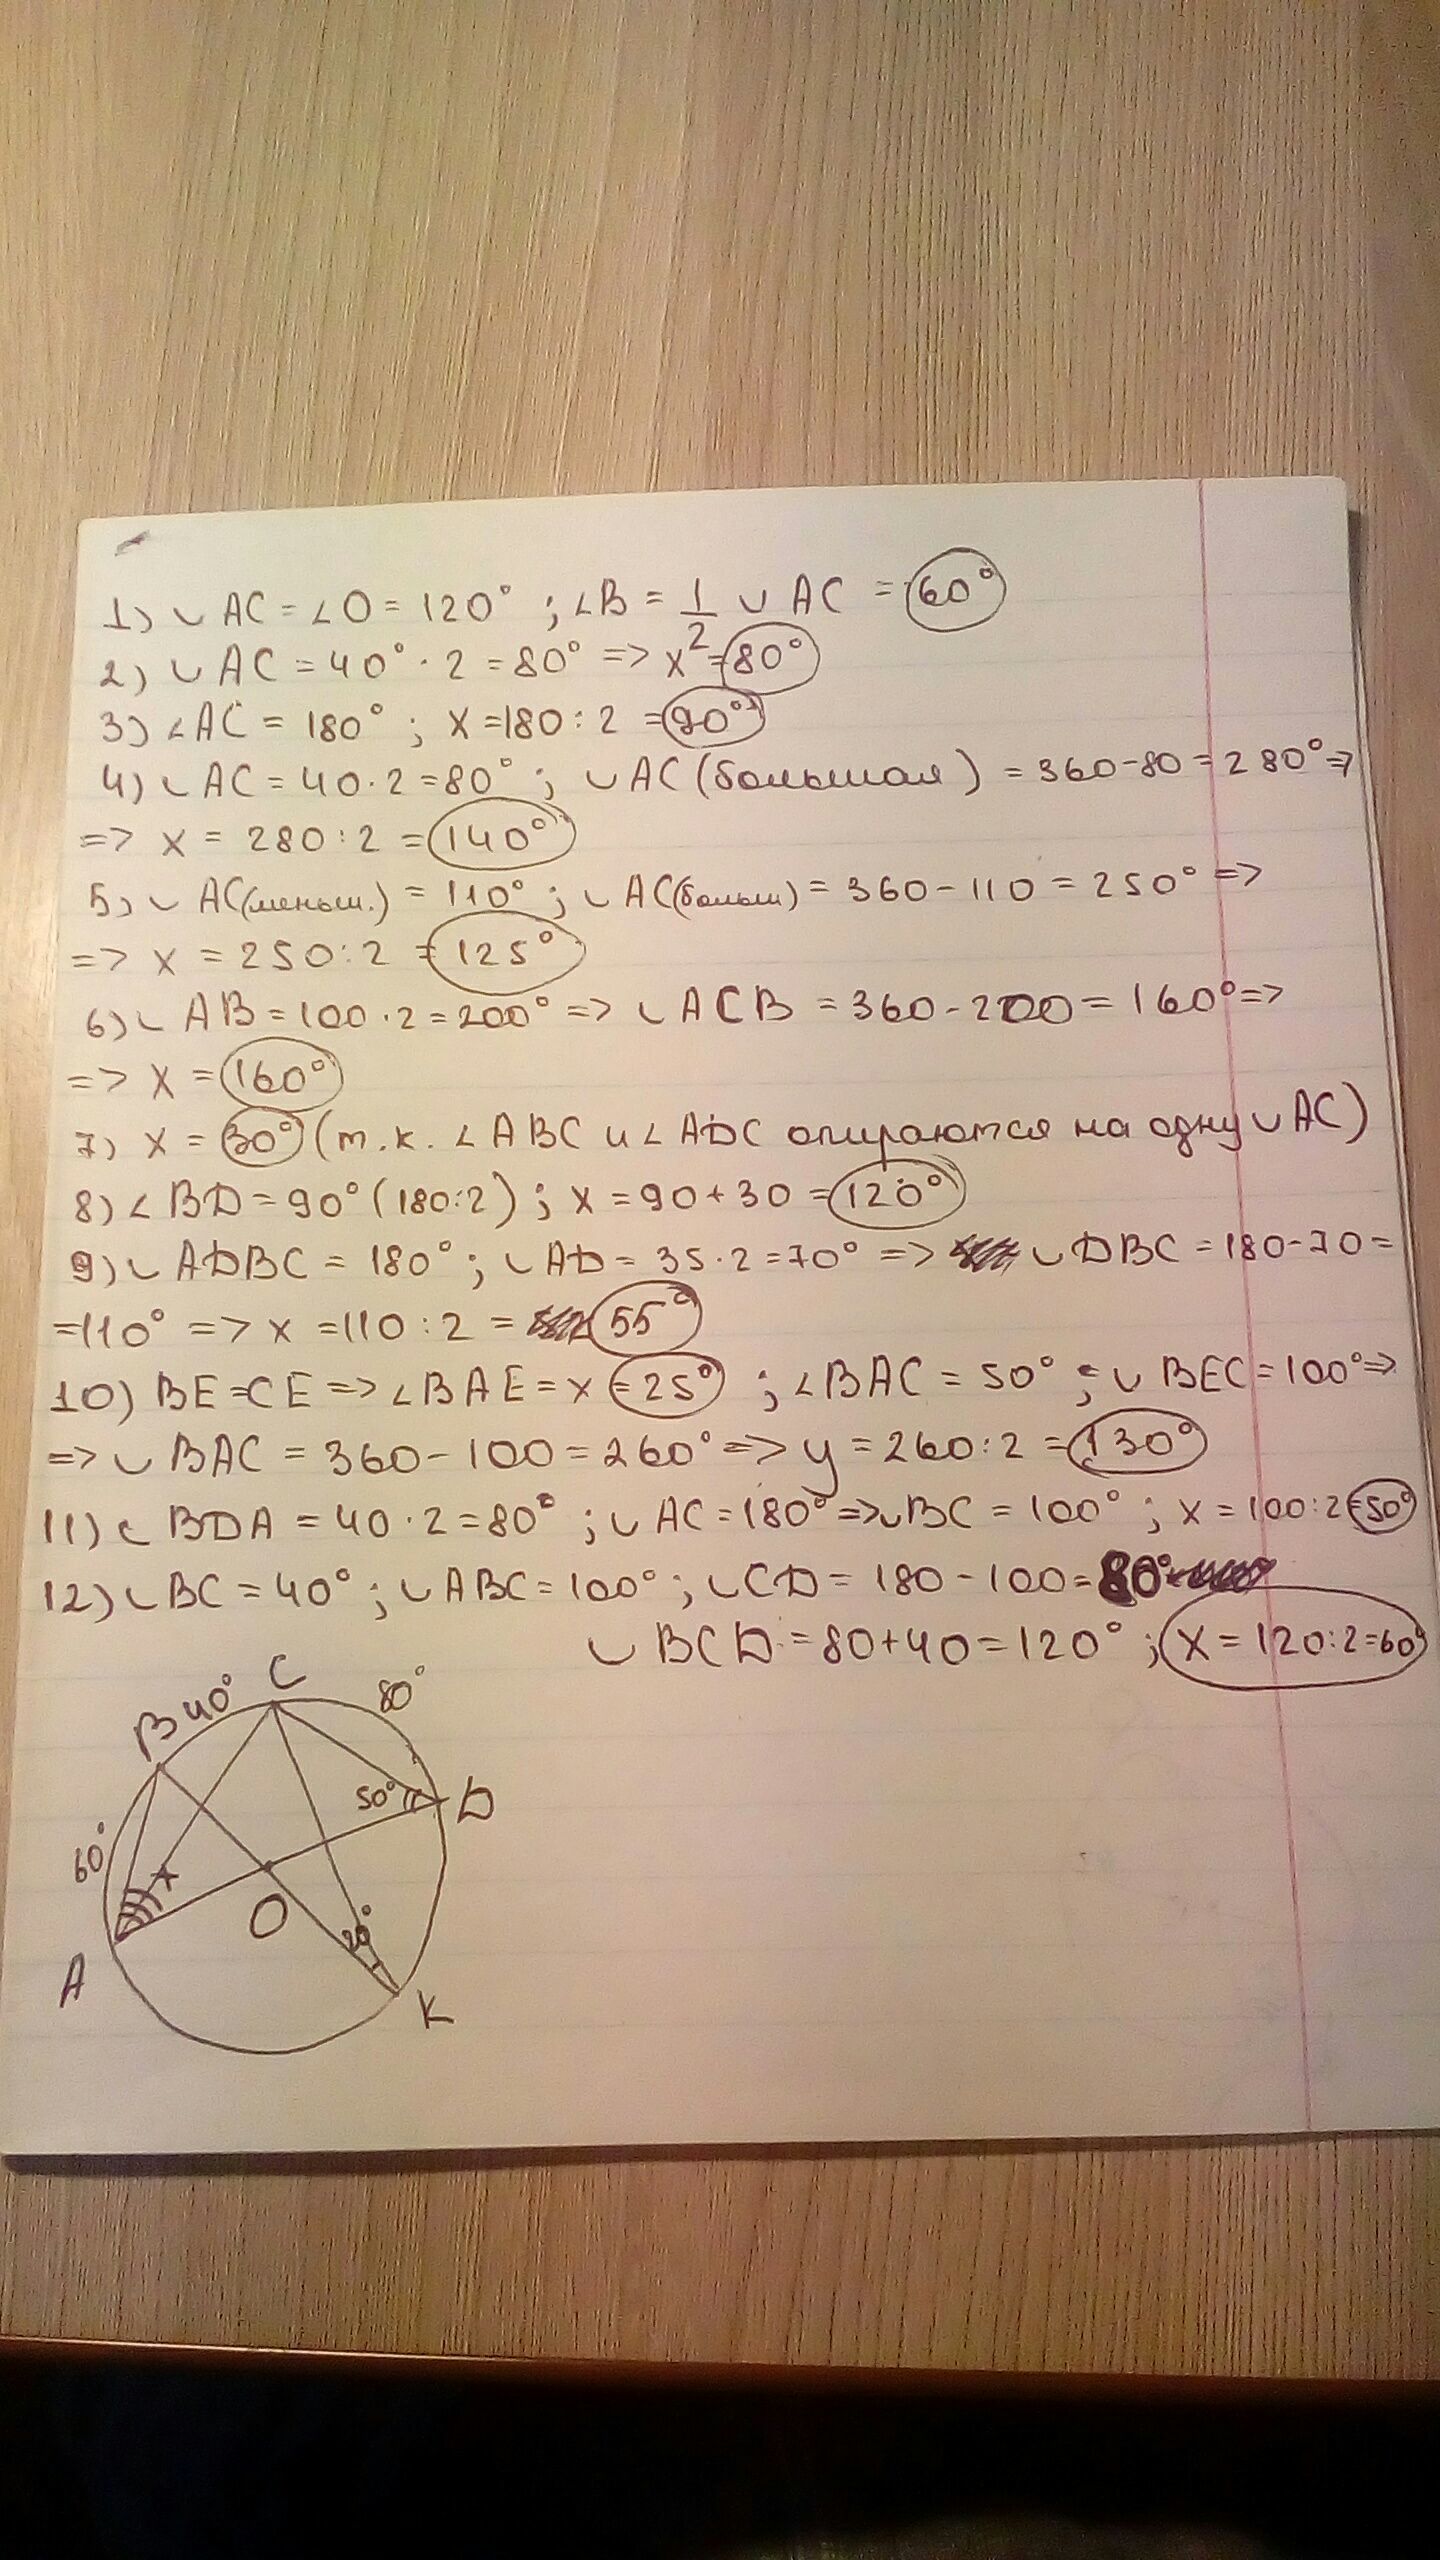 1) ◡ AC = ∠O = 120° ; ∠B = 1/2 ◡ AC = 60°
2) ◡ AC = 40° · 2 = 80° => x = 80°
3) ∠AC = 180° ; x = 180 : 2 = 90°
4) ◡ AC = 40 · 2 = 80° ; ◡ AC (большая) = 360 - 80 = 280° =>
=> x = 280 : 2 = 140°
5) ◡ AC (меньш.) = 110° ; ◡ AC (больш) = 360 - 110 = 250° =>
=> x = 250 : 2 = 125°
6) ◡ AB = 100 · 2 = 200° => ◡ ACB = 360 - 200 = 160° =>
=> x = 160°
7) x = 30° (т.к. ∠ ABC и ∠ ADC опираются на одну ◡ AC)
8) ∠ BD = 90° (180:2) ; x = 90 + 30 = 120°
9) ◡ ADBC = 180° ; ◡ AD = 35 · 2 = 70° => ◡ DBC = 180 - 70 =
= 110° => x = 110 : 2 = 55°
10) BE = CE => ∠BAE = x = 25° ; ∠BAC = 50° ; ◡ BEC = 100° =>
=> ◡ BAC = 360 - 100 = 260° => y = 260 : 2 = 130°
11) ◡ BDA = 40 · 2 = 80° ; ◡ AC = 180° => ◡ BC = 100° ; x = 100 : 2 = 50°
12) ◡ BC = 40° ; ◡ ABC = 100° ; ◡ CD = 180 - 100 = 80°
◡ BCD = 80 + 40 = 120° ; x = 120 : 2 = 60°
C
B 40°
80°
50°
D
60°
x
O
20°
A
K